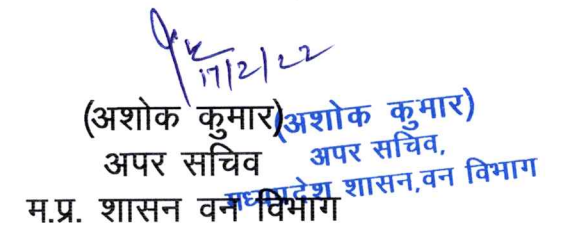 17/2/22
(अशोक कुमार)
अपर सचिव
म.प्र. शासन वन विभाग
(अशोक कुमार)
अपर सचिव,
मध्यप्रदेश शासन,वन विभाग